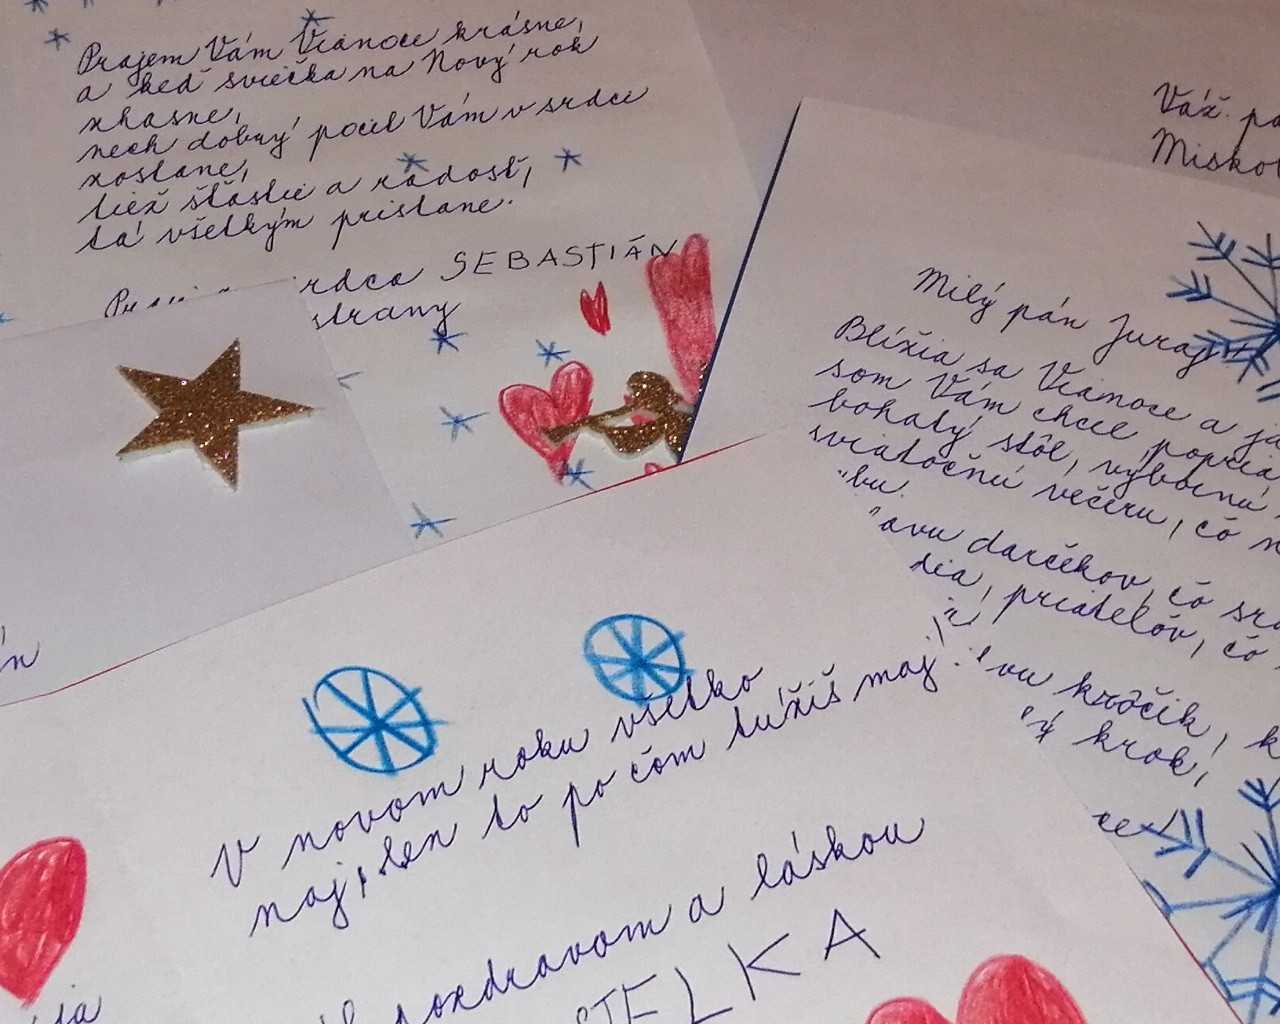 Prajem Vám Vianoce krásne,
a keď sviečka na Nový rok
zhasne,
nech dobrý pocit Vám v srdci
zostane,
tiež šťastie a radosť,
tá všetkým pristane.
srdca SEBASTIÁN
strany
Váž. pa
Miskov
Milý pán Juraj
Blížia sa Vianoce a ja
som Vám chce popria
bohatý stôl, výbornú
sviatočnú večeru, čo n
darčekov, čo sra
priateľov, čo
krôčik, k
krok,
V novom roku všetko
maj, len to po čom túžiš maj!
pozdravom a láskou
STELKA